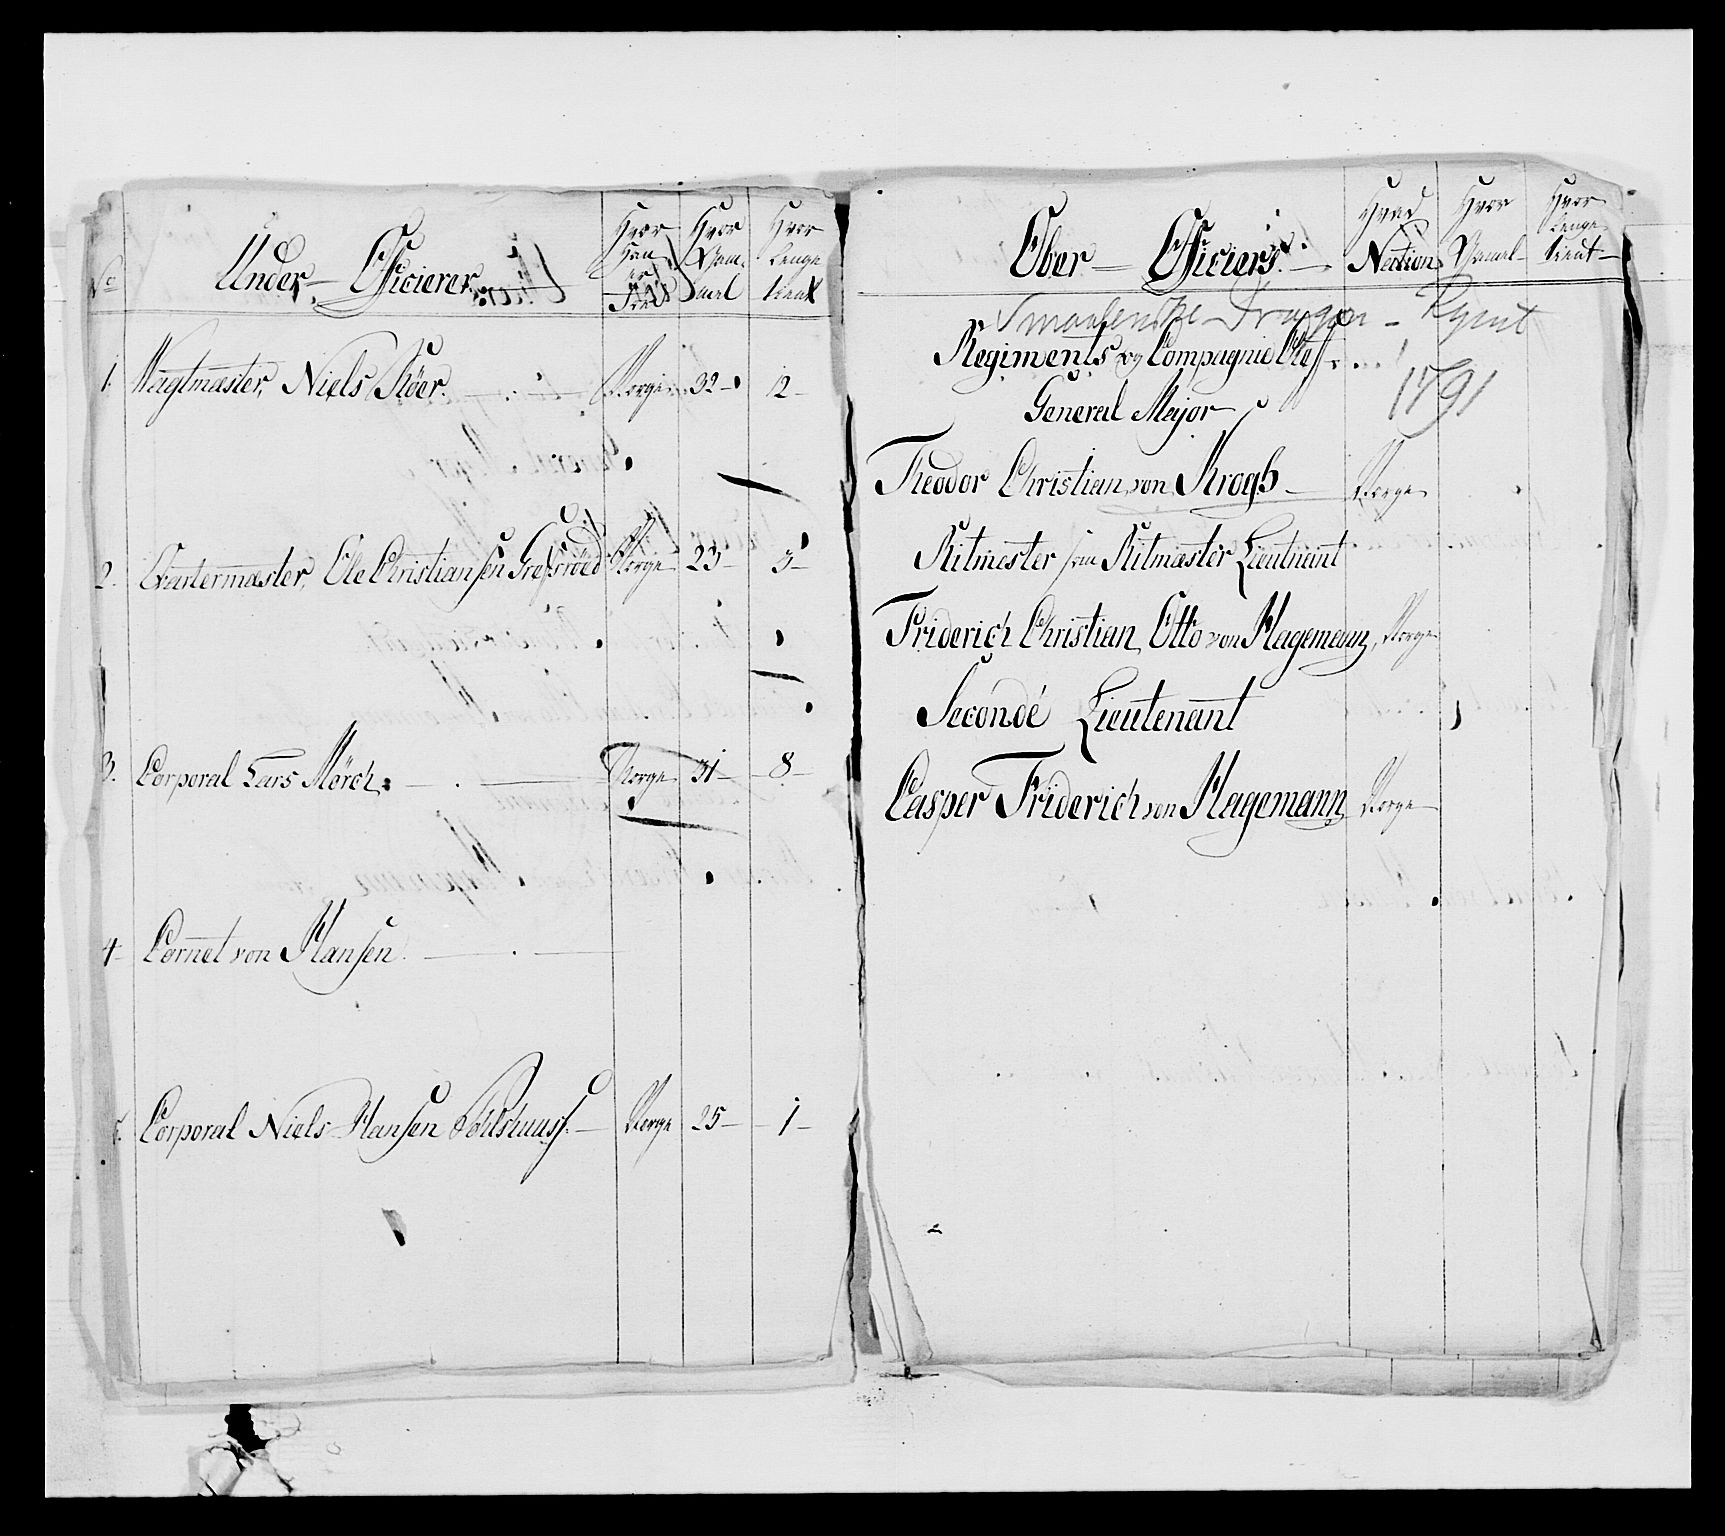 No
Under-Officierer
Hvor Han er Föed
Hvor Gam mel
Hvor Lenge tient
1. Wagtmæster, Niels Köer. Norge 32 12
2. Qvartermæster, Ole Christiansen Norge 23 3
3. Corporal Lars Mörch Norge 31 8
4 Cornet von Hansen
5. Corporal Niels Hansen Norge 25 1
Ober-Officiers
Hvad Nation
Hvor Gamel
Hvor Lenge tient
Smaalenske Dragon-Rgmt
Regiments og Compagnie Chef
1791
General Major
Theodor Christian von Krogh Norge
Ritmester Ritmæster Lieutnant
Friderich Christian Otto von Hagemann, Norge
Secondé Lieutenant
Casper Friderich von Hagemann Norge